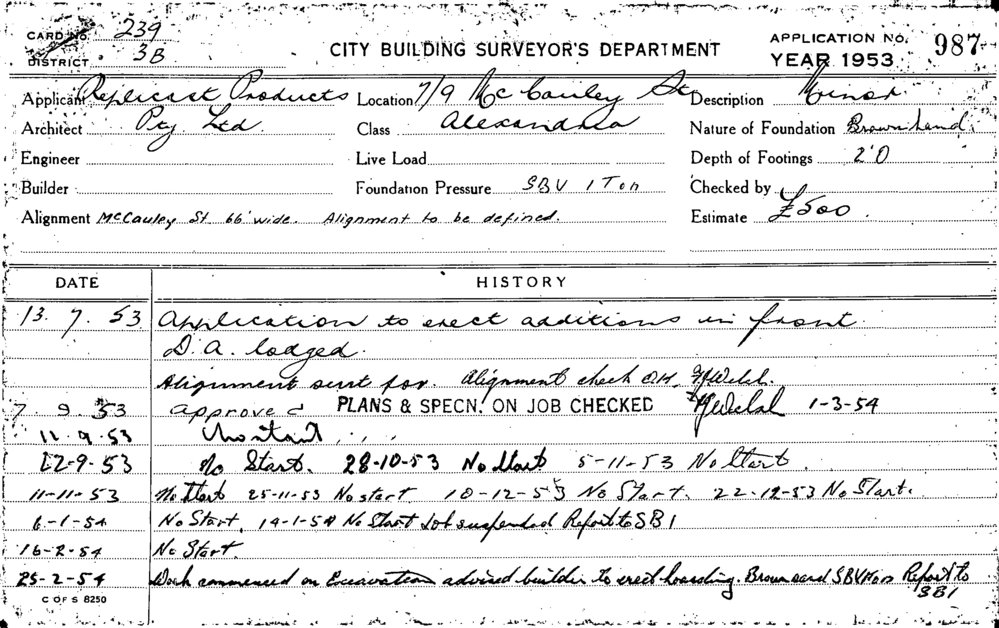 CARD No. 239
DISTRICT 3B
CITY BUILDING SURVEYOR'S DEPARTMENT
APPLICATION No. 987
YEAR 1953
Applicant Replicast Products Location 7/9 McCauley St. Description Minor
Architect Pty Ltd. Class Alexandria Nature of Foundation Brown sand.
Engineer Live Load Depth of Footings 2'0
Builder Foundation Pressure SBV 1 Ton Checked by
Alignment McCauley St 66' wide. Alignment to be defined. Estimate £500
DATE HISTORY
13. 7. 53 Application to erect additions in front
D.A. lodged.
Alignment sent for. Alignment check O.K. Welsh.
7. 9. 53 approved PLANS & SPECN. ON JOB CHECKED Welsh 1-3-54
11. 9. 53 No start
22-9-53 No Start. 28-10-53 No Start 5-11-53 No Start.
11-11-53 No Start 25-11-53 No start 10-12-53 No Start. 22-12-53 No Start.
6-1-54 No Start. 14-1-54 No Start Job suspended Report to SB1
16-2-54 No Start
25-2-54 Work commenced on Excavation advised builder to erect hoarding. Brown sand SBV Report to
SB1
C OF S 8250